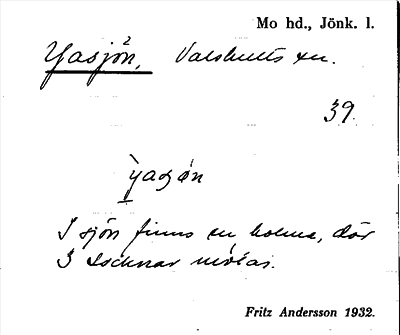 Mo hd., Jönk. l.
Yasjön, Valshults en.
39.
yasøn
I sjön finns en holme, där
3 socknar mötas.
Fritz Andersson 1932.